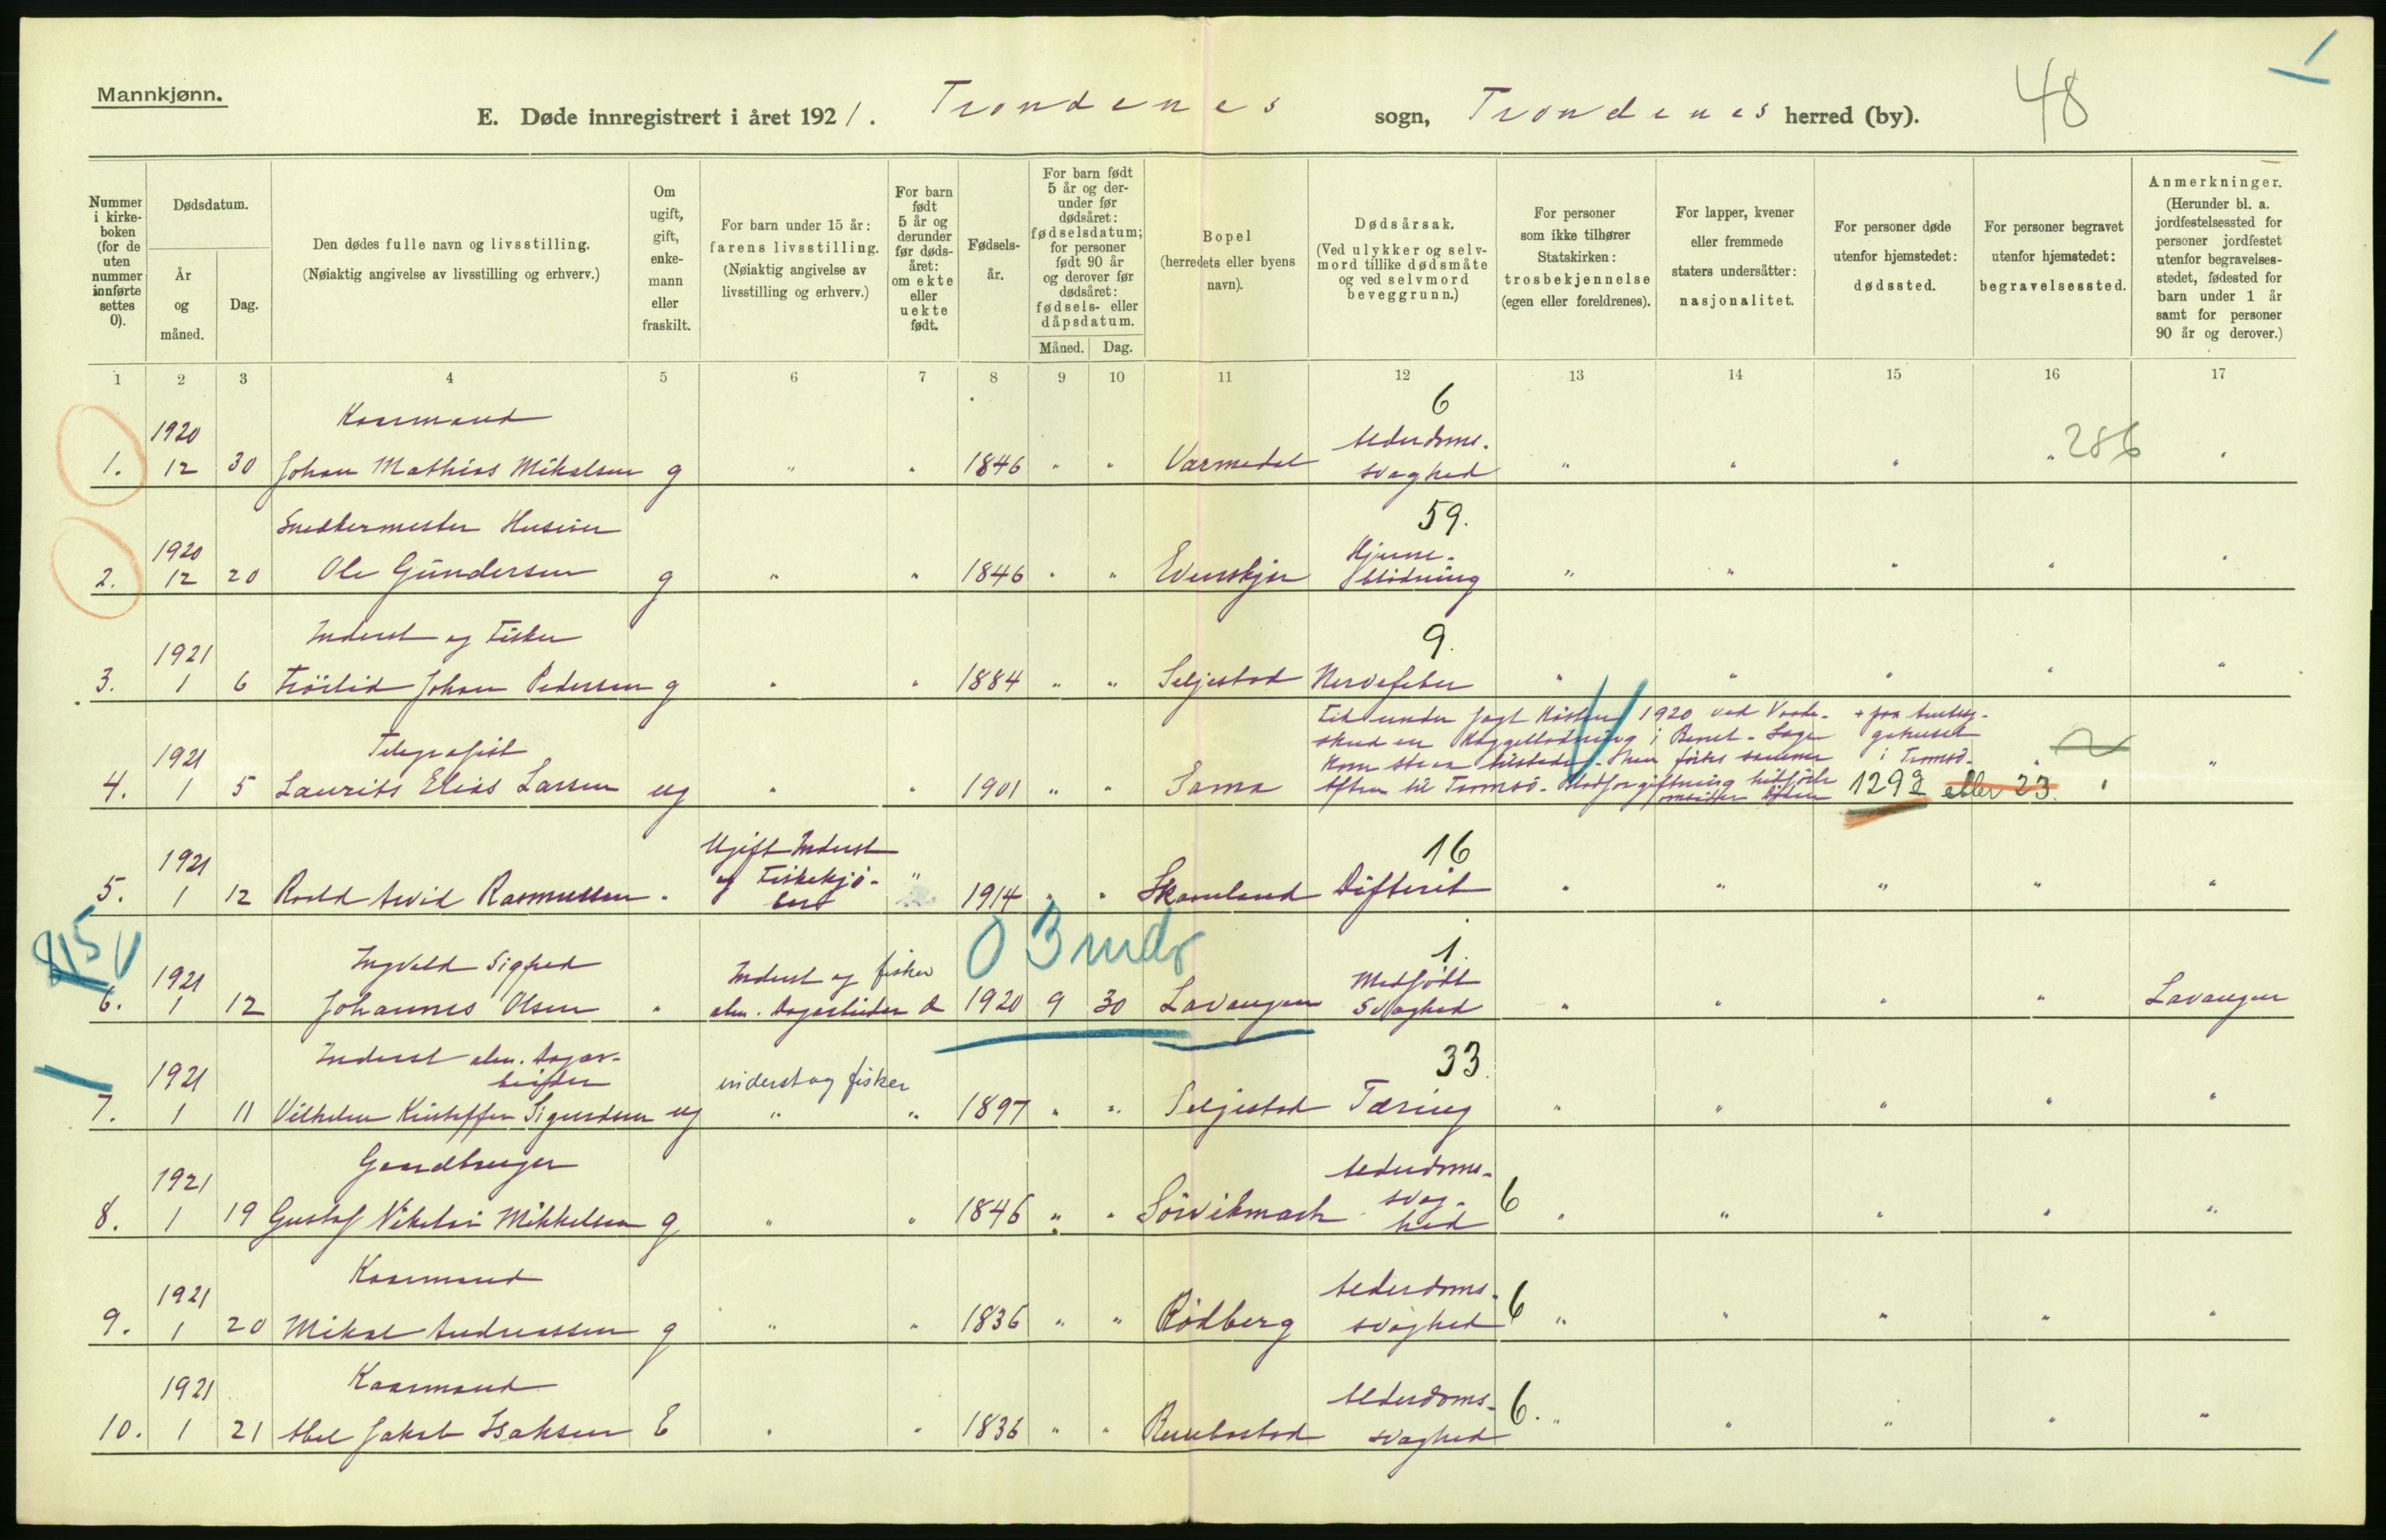 Mannkjønn.
E. Døde innregistrert i året 1921. Trondenes sogn, Trondenes herred (by).
48
Nummer i kirke-boken (for de uten nummer innførte settes 0).
Dødsdatum.
År og måned.
Dag.
Den dødes fulle navn og livsstilling.
(Nøiaktig angivelse av livsstilling og erhverv.)
Om ugift, gift, enke-mann eller fraskilt.
For barn under 15 år: farens livsstilling.
(Nøiaktig angivelse av livsstilling og erhverv.)
For barn født 5 år og derunder før døds-året: om ekte eller uekte født.
Fødsels-år.
For barn født 5 år og der-under før dødsåret: fødselsdatum; for personer født 90 år og derover før dødsåret: fødsels- eller dåpsdatum.
Måned. Dag.
Bopel
(herredets eller byens navn).
Dødsårsak.
(Ved ulykker og selv-mord tillike dødsmåte og ved selvmord beveggrunn.)
For personer som ikke tilhører Statskirken: trosbekjennelse (egen eller foreldrenes).
For lapper, kvener eller fremmede staters undersåtter: nasjonalitet.
For personer døde utenfor hjemstedet: dødssted.
For personer begravet utenfor hjemstedet: begravelsessted.
Anmerkninger.
(Herunder bl. a. jordfestelsessted for personer jordfestet utenfor begravelses-stedet, fødested for barn under 1 år samt for personer 90 år og derover.)
1 2 3 4 5 6 7 8 9 10 11 12 13 14 15 16 17
Kaarmand 6
1. 1920 12 30 Johan Mathias Mikalsen g " " 1846 " " Varmedal Alderdoms-svaghed " " " " 286 "
Snedkermester Huseier 59.
2. 1920 12 20 Ole Gundersen g " " 1846 " " Evenskjer Hjerne-blødning " " " " "
Inderst og Fisker 9.
3. 1921 1 6 Trøilid Johan Pedersen g " " 1884 " " Seljestad Nervefeber " " " " "
Telegrafist
4. 1921 1 5 Laurits Elias Larsen ug " " 1901 " " Sama
Fik under Jagt Høsten 1920 ved Vaade-
skud en Haggelladning i Benet - Læge
kom straa tilstede - Sken førtes samme
Aften til Tromsø - Blodforgiftning
i Tromsø.
1292 eller 23. "
Ugift Inderst 16
5. 1921 1 12 Roald Arvid Rasmussen " og Fiskekjø- " 1914 " " Skaneland Difterit " " " " "
815
0 3 mdr
Ingvald Sigfred 1.
6. 1921 1 12 Johannes Olsen " Inderst og fisker alm. Dagarbeider 1920 9 30 Lavangen Medfødt Svaghed " " " " Lavangen
Inderst alm. Dagar-beider 33
7. 1921 1 11 Vilhelm Kristoffer Sigurdsen ug inderst og fisker " " 1897 " " Seljestad Tæring " " " " "
Gaardbruger
8. 1921 1 19 Gustaf Nikolai Mikkelsen g " " 1846 " " Sørvikmark Alderdoms-svag-hed 6 " " " " "
Kaarmand
9. 1921 1 20 Mikal Andreassen g " " 1836 " " Rødberg Alderdoms-svaghed 6 " " " " "
Kaarmand
10. 1921 1 21 Abel Jakob Isaksen E " " 1836 " " Alderdoms-svaghed 6. " " " " "